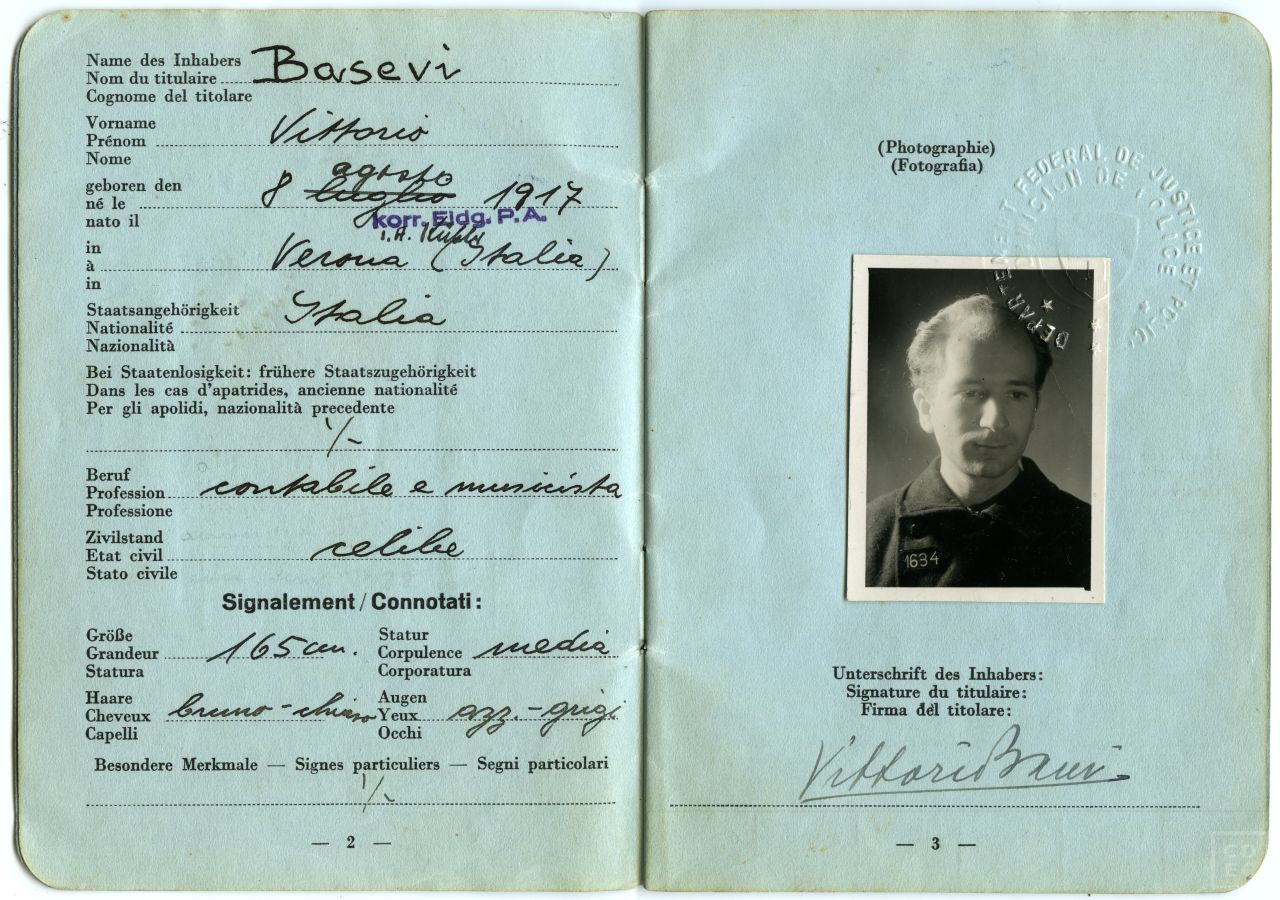 Name des Inhabers
Nom du titulaire Basevi
Cognome del titolare
Vorname
Prénom Vittorio
Nome
geboren den agosto
né le 8 luglio 1917
nato il korr. Eidg. P.A.
in i.A.
à Verona (Italia)
in
Staatsangehörigkeit
Nationalité Italia
Nazionalità
Bei Staatenlosigkeit: frühere Staatszugehörigkeit
Dans les cas d'apatrides, ancienne nationalité
Per gli apolidi, nazionalità precedente
1/-
Beruf
Profession contabile e musicista
Professione
Zivilstand
Etat civil celibe
Stato civile
Signalement / Connotati:
Größe Statur
Grandeur 165 cm. Corpulence media
Statura Corporatura
Haare Augen
Cheveux bruno-chiaro Yeux azz.-grigi
Capelli Occhi
Besondere Merkmale — Signes particuliers — Segni particolari
1/-
— 2 —
(Photographie)
(Fotografia)
DEPARTEMENT FEDERAL DE JUSTICE ET POLIC.
DE POLICE
1694
Unterschrift des Inhabers:
Signature du titulaire:
Firma del titolare:
Vittorio Basevi
— 3 —
CDEC